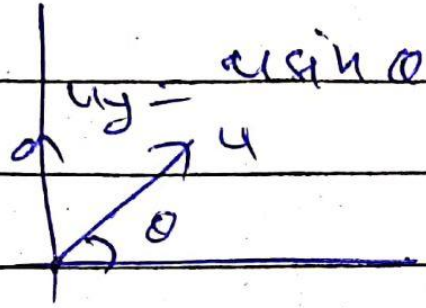 uy = u sin θ
u
θ